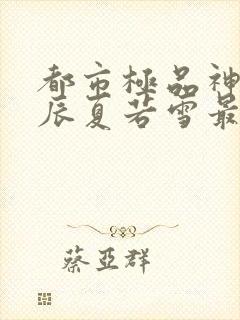 都市極品神
辰夏若雪最
蔡亞群